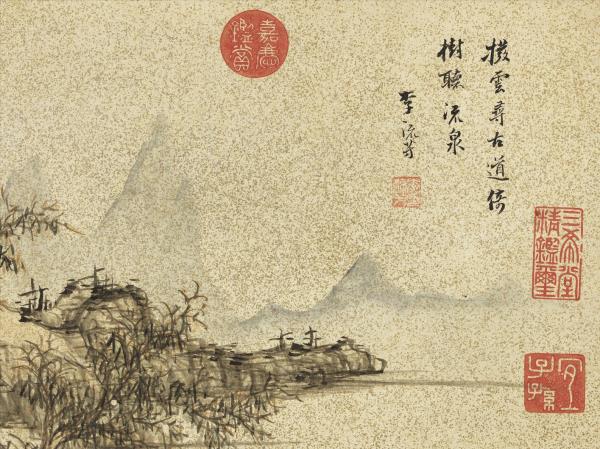 撥雲尋古道倚
樹聽流泉
李流芳
嘉慶鑑賞
三希堂
精鑑璽
宜
子孫